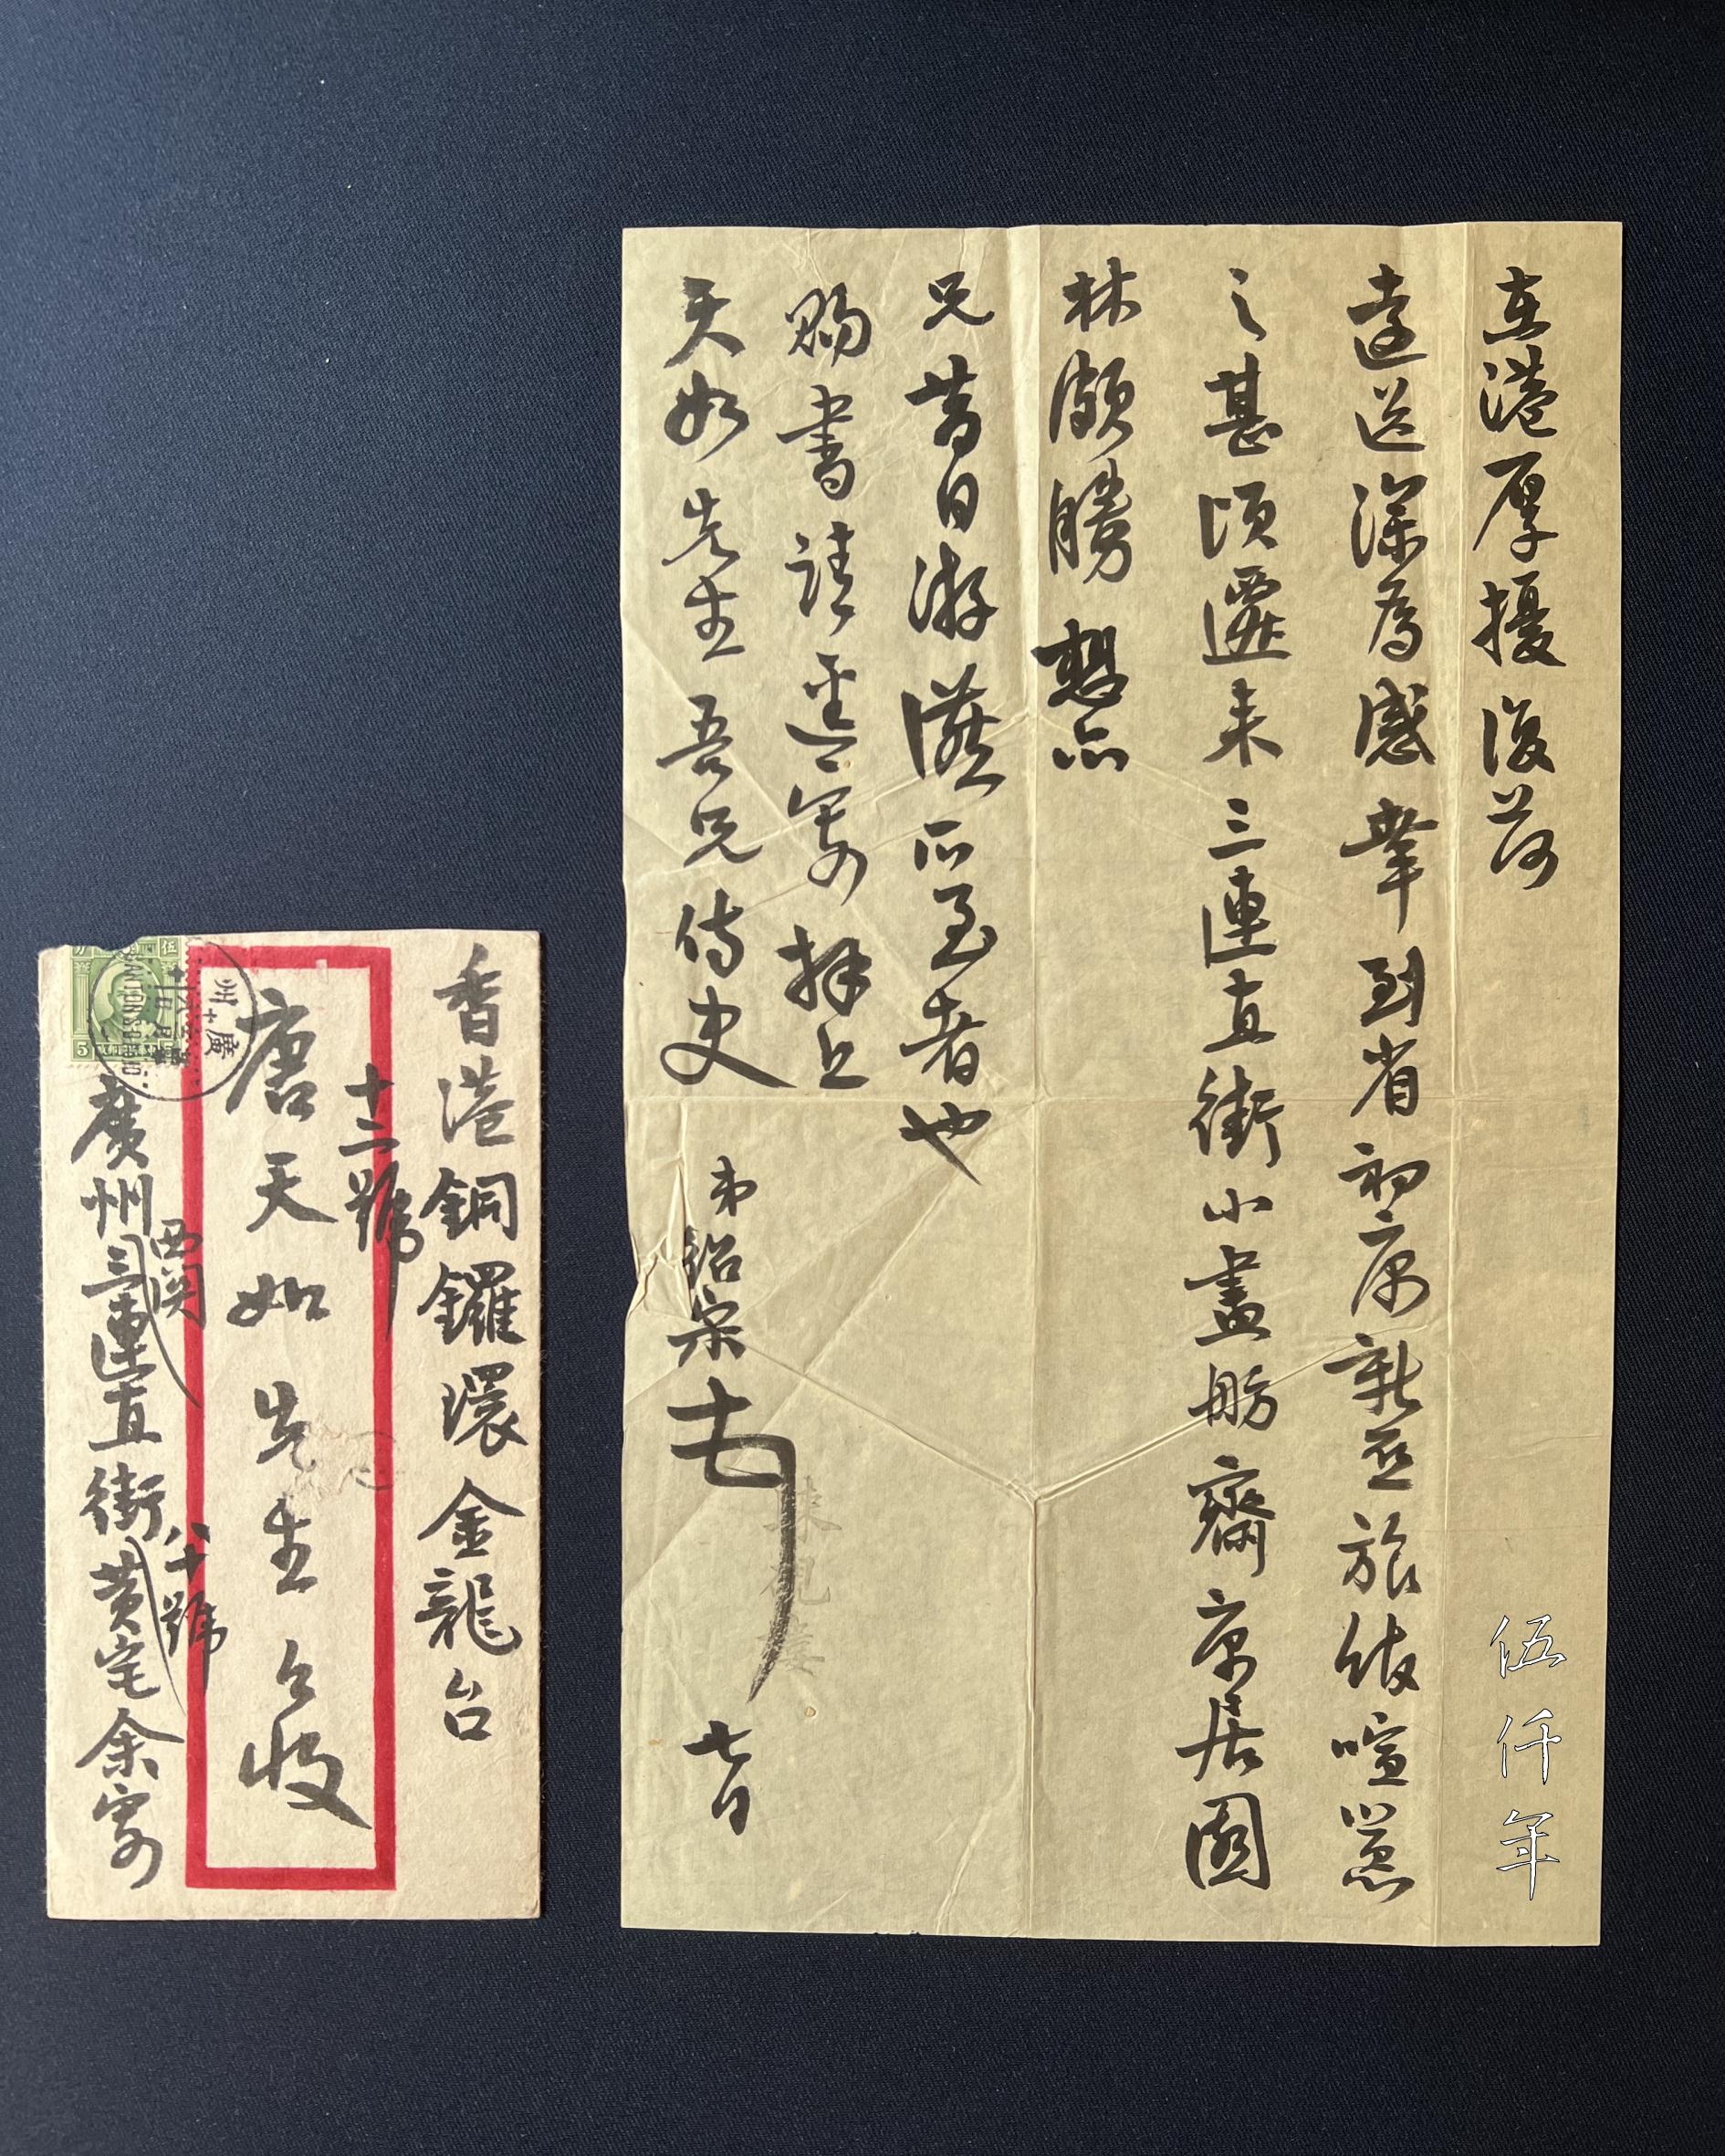 在港厚擾復荷
遠送深為感 到省初寓新亞旅館喧囂
之甚頃遷来三連直街小畫舫齋寓居園
林頗勝想亦
兄昔日游讌所至者也
賜書請逕寄拜上
天如先生吾兄侍史 弟紹宋 七日
伍仟年
香港銅鑼環金龍台
十二號
唐天如先生台收
廣州西関三連直街八十號黃宅余寄
廣州
CANTON
伍
5